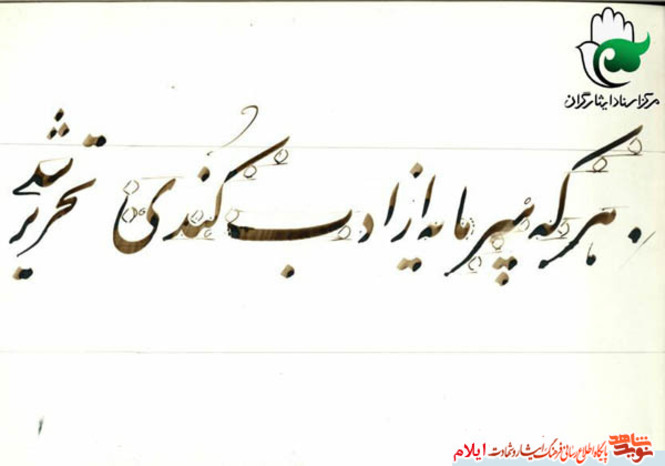 مرکز اسناد ایثارگران
هر که سرمایه از ادب کندی تحریر
۱
نوید شاهد پایگاه اطلاع رسانی فرهنگ ایثار و شهادت ایلام